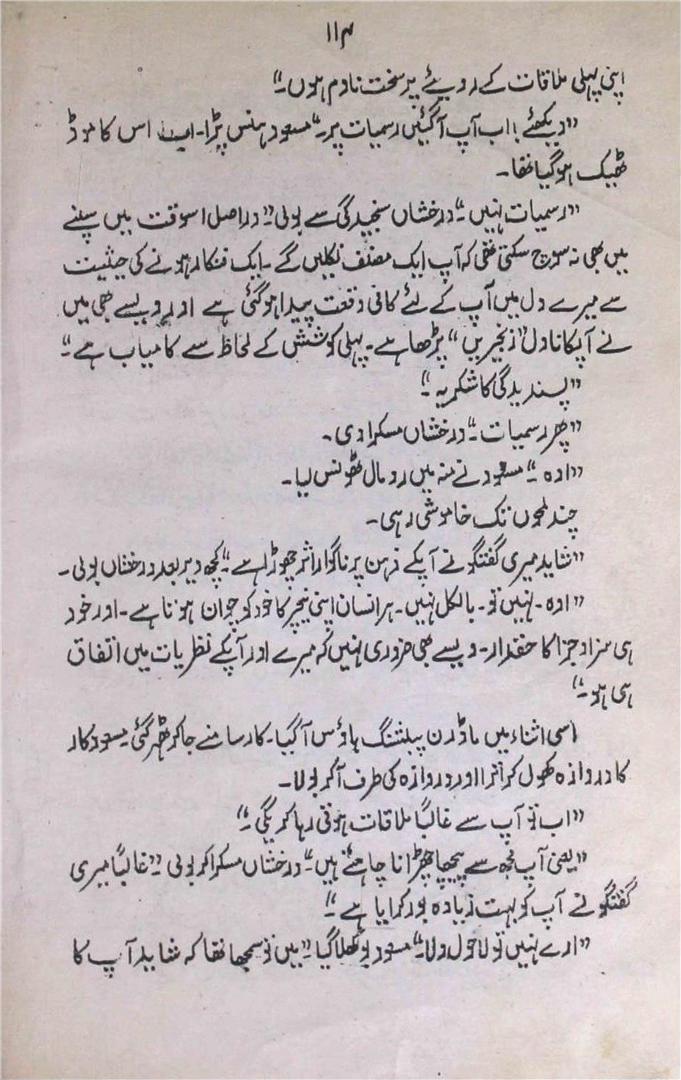 ۱۱۴
اپنی پہلی ملاقات کے رویئے پر سخت نادم ہوں۔“
”دیکھئے ! اب آپ آگئیں رسمیات پر۔“ مسعود ہنس پڑا۔ اب اس کا موڈ
ٹھیک ہوگیا تھا۔
”رسمیات نہیں۔“ درخشاں سنجیدگی سے بولی ”دراصل اسوقت میں سپنے
میں بھی نہ سوچ سکتی تھی کہ آپ ایک مصنف نکلیں گے۔ ایک فنکار ہونے کی حیثیت
سے میرے دل میں آپ کے لئے کافی وقعت پیدا ہوگئی ہے اور ویسے بھی میں
نے آپکا ناول ”زنجیریں“ پڑھا ہے۔ پہلی کوشش کے لحاظ سے کامیاب ہے“
”پسندیدگی کا شکریہ“
”پھر رسمیات۔“ درخشاں مسکرا دی۔
”اوہ“ مسعود نے منہ میں رومال ٹھونس لیا۔
چند لمحوں تک خاموشی رہی۔
”شاید میری گفتگو نے آپکے ذہن پر ناگوار اثر چھوڑا ہے“ کچھ دیر بعد درخشاں بولی۔
”اوہ۔ نہیں تو۔ بالکل نہیں۔ ہر انسان اپنی نیچر کا خود کو جوان ہوتا ہے۔ اور خود
ہی سزا و جزا کا حقدار۔ ویسے بھی ضروری نہیں کہ میرے اور آپکے نظریات میں اتفاق
ہی ہو۔“
اسی اثناء میں ماڈرن پبلشنگ ہاؤس آگیا۔ کار سامنے جاکر ٹھہر گئی۔ مسعود کار
کا دروازہ کھول کر اترا اور دروازہ کی طرف آکر بولا۔
”اب تو آپ سے غالباً ملاقات ہوتی رہا کریگی۔“
”یعنی آپ مجھ سے پیچھا چھڑانا چاہتے ہیں۔“ درخشاں مسکرا کر بولی ”غالباً میری
گفتگو نے آپ کو بہت زیادہ بور کرایا ہے۔“
”ارے نہیں تو لاحول ولا۔“ مسعود بوکھلا گیا ”میں تو سمجھا تھا کہ شاید آپ کا